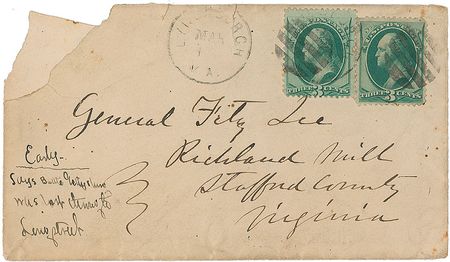 LYNCHBURG
MAR
VA.
THREE 3 CENTS
THREE 3 CENTS
General Fitz Lee
Richland Mill
Stafford County
Virginia
Early
says Battle Gettysburg
was lost through
Longstreet